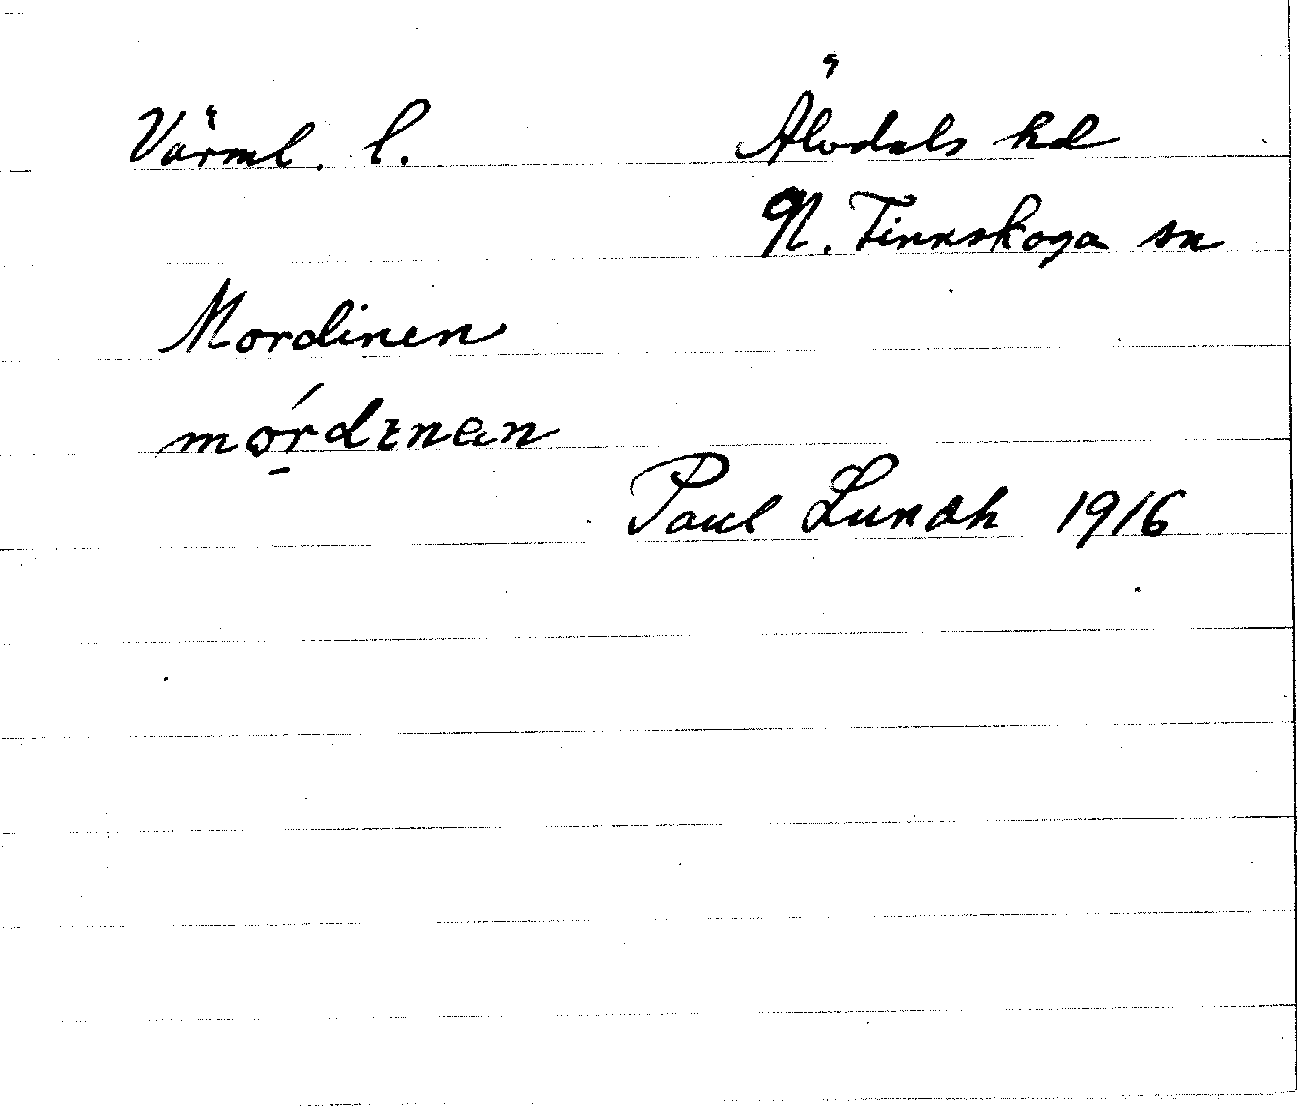 Värml. l. Älvdals hd
N. Finnskoga sn
Mordinen
mo̠´rdɪnan
Paul Lundh 1916